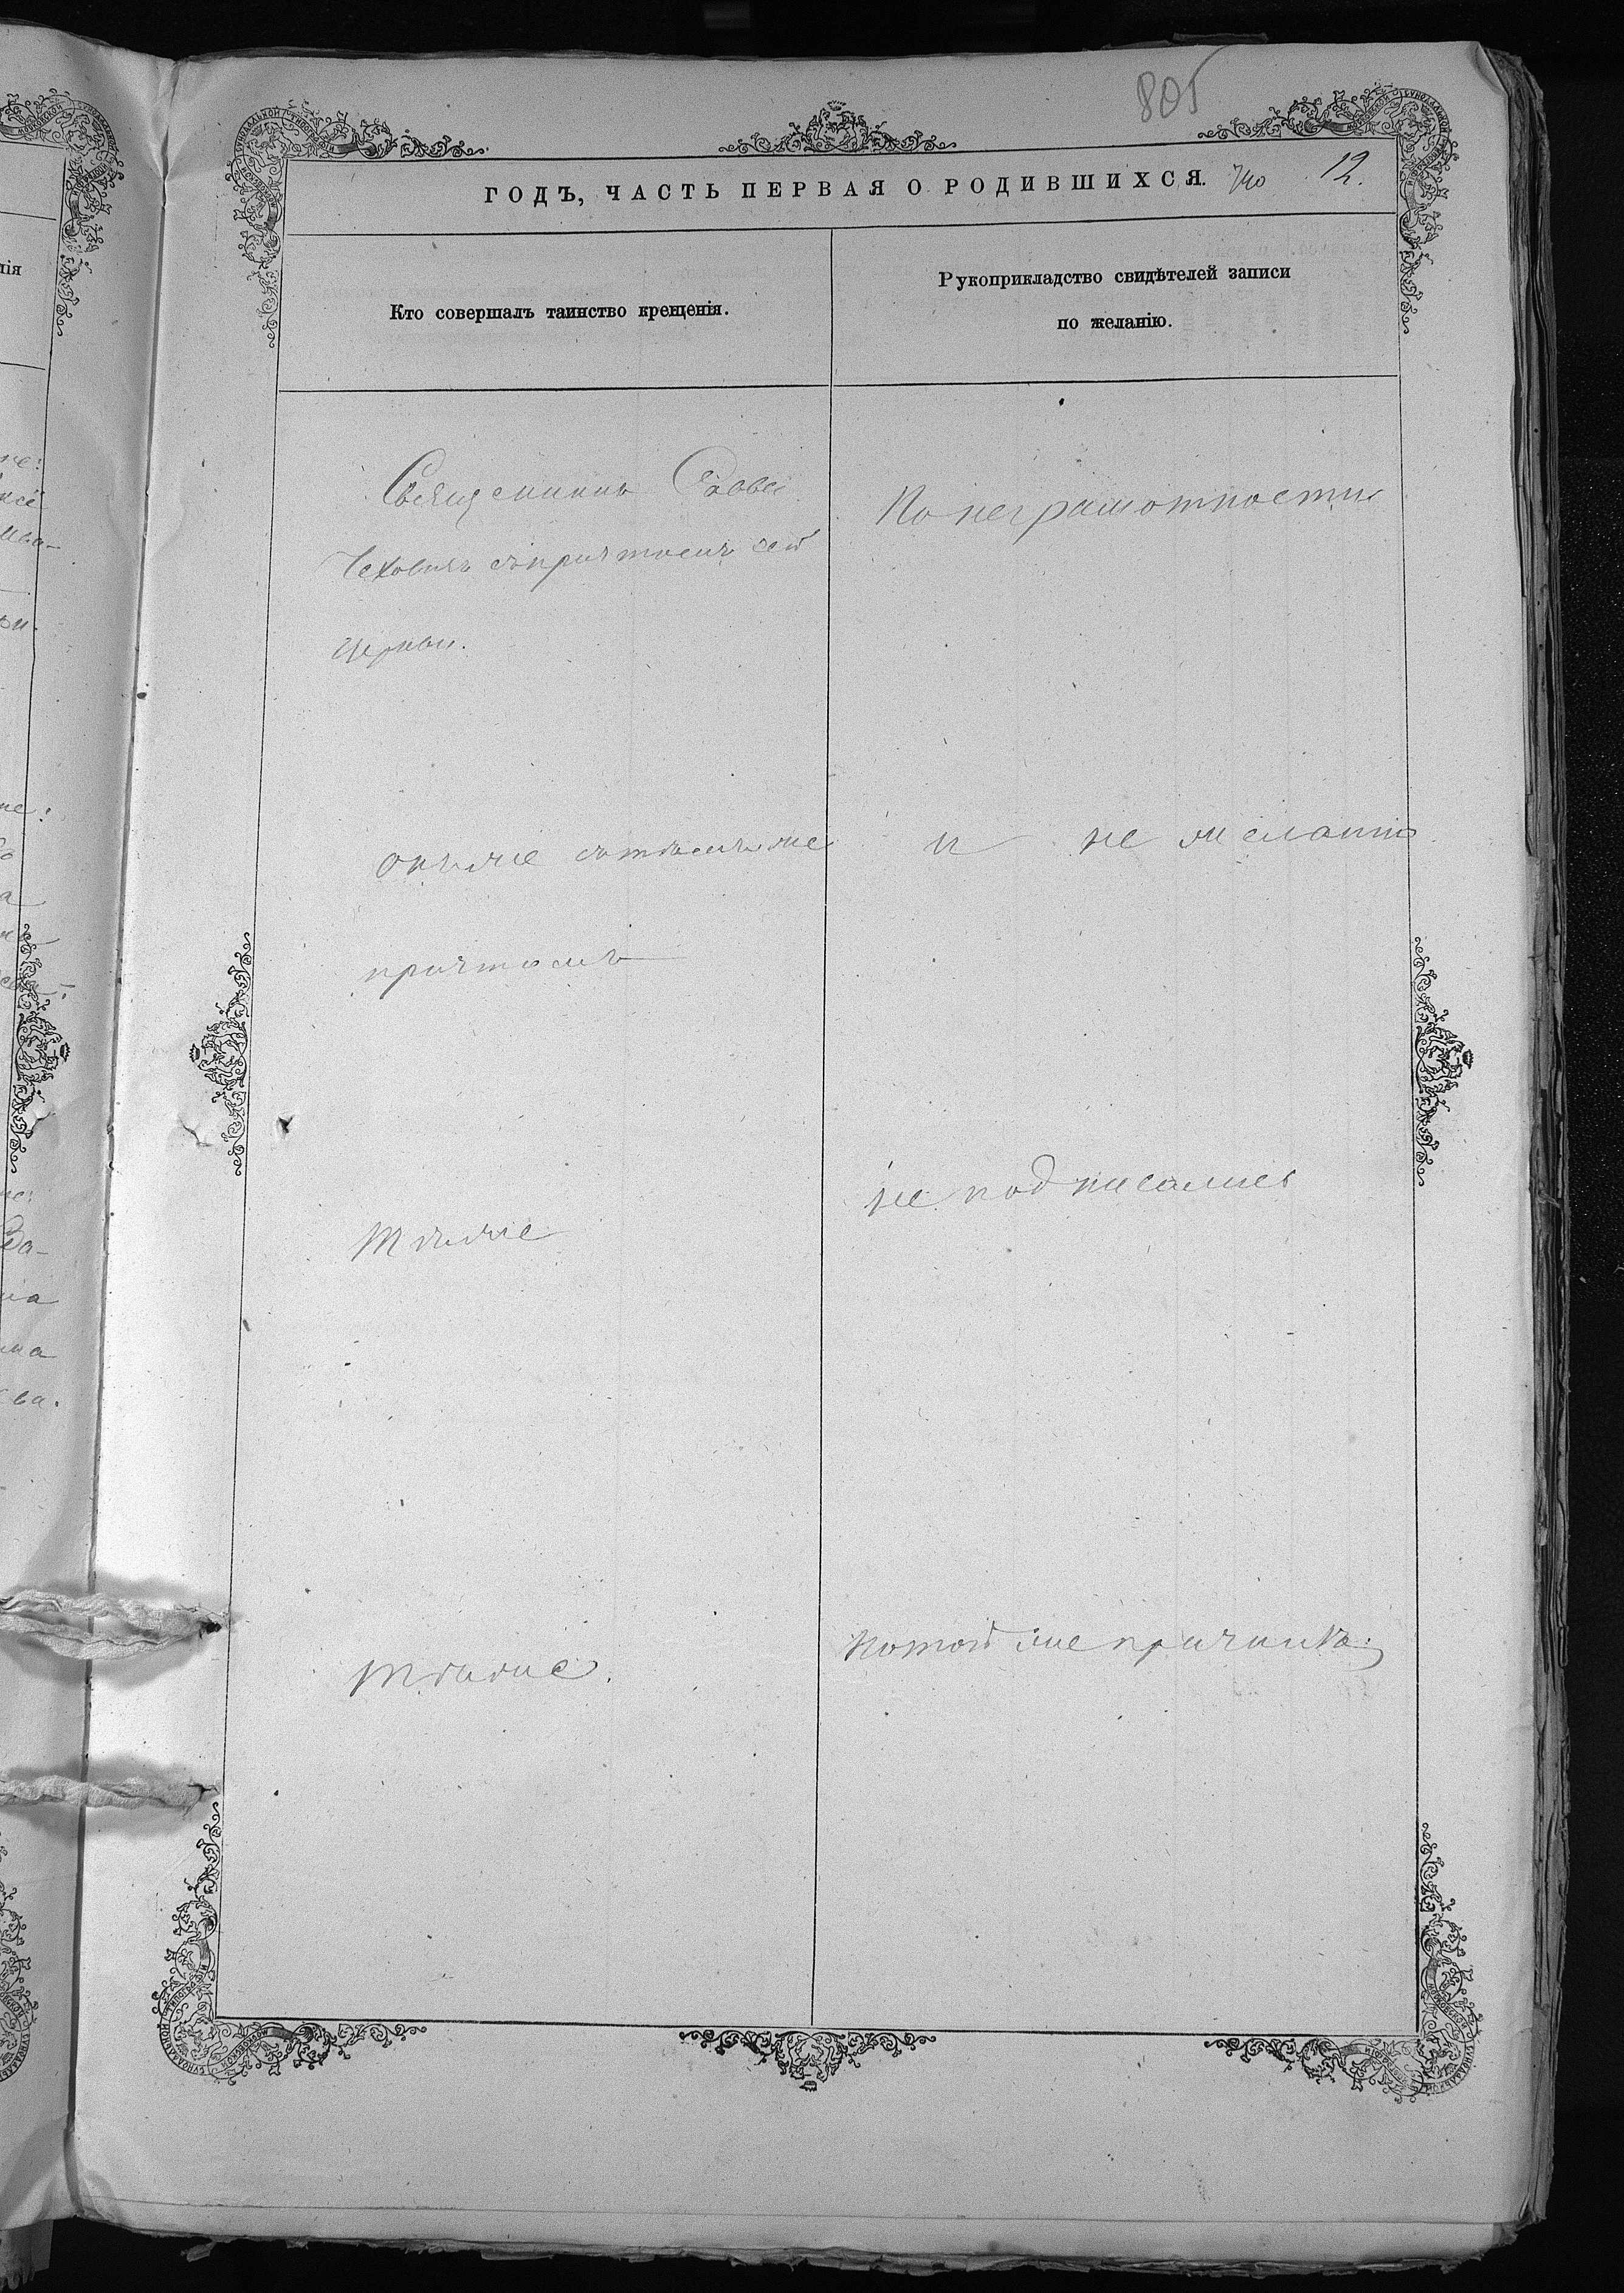 805
ГОДЪ, ЧАСТЬ ПЕРВАЯ О РОДИВШИХСЯ.
12.
Кто совершалъ таинство крещенія.
Рукоприкладство свидѣтелей записи
по желанію.
Священникъ Савва
Чеховичъ съ причтомъ сей
церкви.
По неграмотности
онъ же съ тѣмъ же
причтомъ
и не желанію
тѣ же
не подписались
тѣ же.
по той же причинѣ.